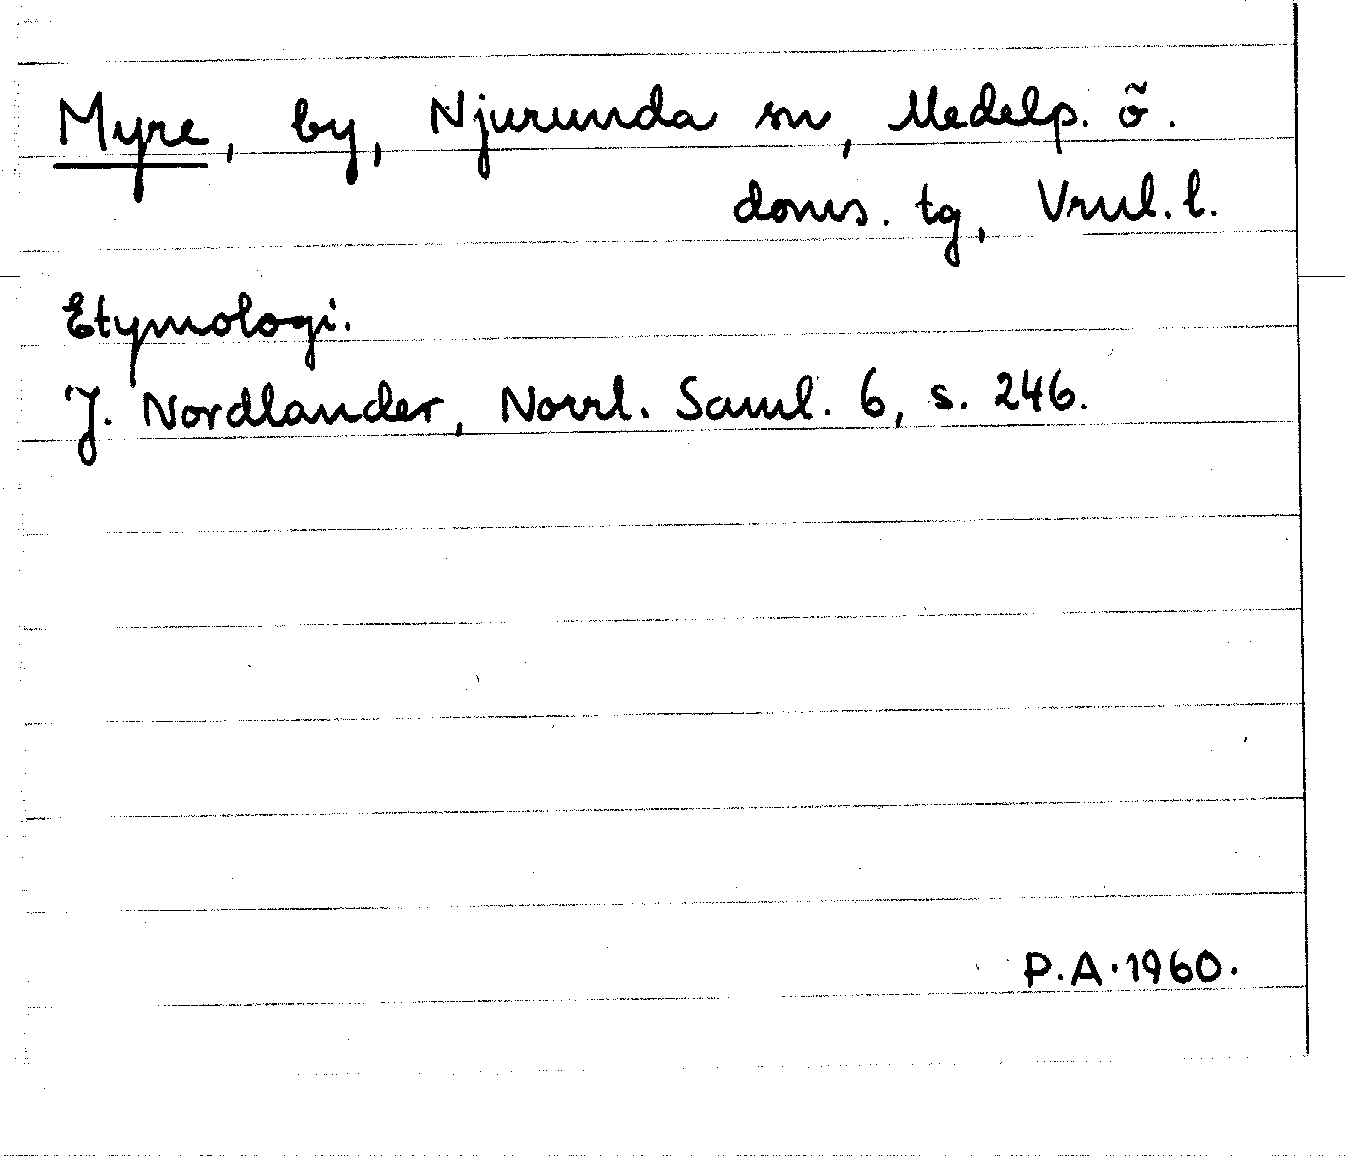 Myre, by, Njurunda sn, Medelp. ö.
doms. tg, Vrnl. l.
Etymologi.
J. Nordlander, Norrl. Saml. 6, s. 246.
P.A. 1960.